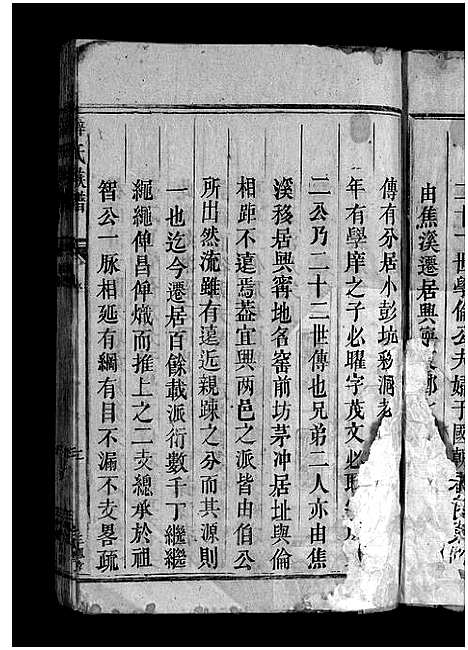 二十一世學倫公夫婦于國朝
由焦溪遷居興寧
傳有分居小彭坑移洞
年有學庠之子必曜字茂文必
二公乃二十三世傳也兄弟二人亦由焦
溪移居興寗地名窑前坊茅冲居址與倫
相距不遠焉蓋宜興两邑之派皆由伯公
所出然流雖有遠近親踈之分而其源則
一也迄今遷居百餘載派衍數千丁繼繼
繩繩俾昌俾熾而推上之二支總承於祖
智公一脉相延有綱有目不漏不支畧疏
氏族譜